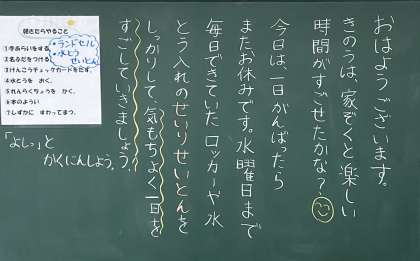 おはようございます。
きのうは、家ぞくと楽しい
時間がすごせたかな?
今日は一日がんばったら
またお休みです。水曜日まで
毎日できていたロッカーや水
とう入れのせいりせいとんを
しっかりして、気もちよく一日を
すごしていきましょう。
朝きたらやること
①手あらいをする。
②名ふだをつける
③けんこうチェックカードをだす。
④水とうを おく。
⑤れんらくちょうを かく。
⑥本のようい
⑦しずかに すわってまつ。
・ランドセル
・水とう
せいとん
「よしっ」と
かくにんしよう。